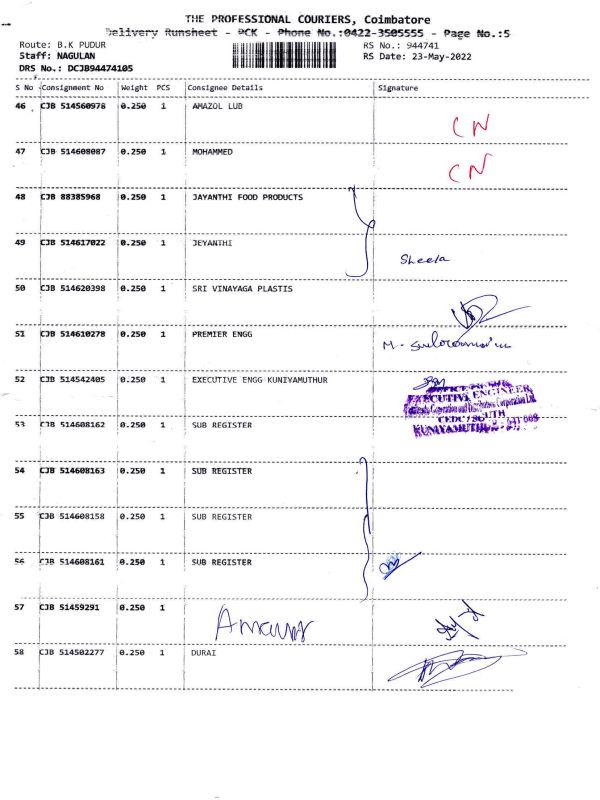 THE PROFESSIONAL COURIERS, Coimbatore
Delivery Runsheet - PCK - Phone No.:0422-3505555 - Page No.:5
Route: B.K PUDUR RS No.: 944741
Staff: NAGULAN RS Date: 23-May-2022
DRS No.: DCJB94474105
S No Consignment No Weight PCS Consignee Details Signature
46 CJB 514560978 0.250 1 AMAZOL LUB
CN
47 CJB 514608087 0.250 1 MOHAMMED
CN
48 CJB 88385968 0.250 1 JAYANTHI FOOD PRODUCTS
49 CJB 514617022 0.250 1 JEYANTHI
Sheela
50 CJB 514620398 0.250 1 SRI VINAYAGA PLASTIS
51 CJB 514610278 0.250 1 PREMIER ENGG
M.
52 CJB 514542405 0.250 1 EXECUTIVE ENGG KUNIYAMUTHUR
EXECUTIVE ENGINEER
53 CJB 514608162 0.250 1 SUB REGISTER
54 CJB 514608163 0.250 1 SUB REGISTER
55 CJB 514608158 0.250 1 SUB REGISTER
56 CJB 514608161 0.250 1 SUB REGISTER
57 CJB 51459291 0.250 1
58 CJB 514502277 0.250 1 DURAI